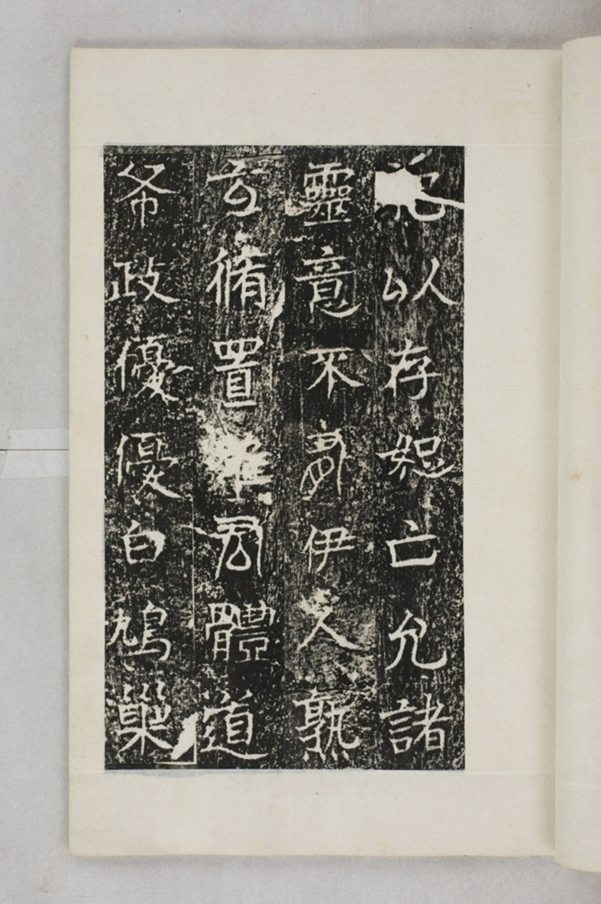 以存恕亡允諸
靈意不伊人孰
云脩置君體道
布政優優白鳩巢